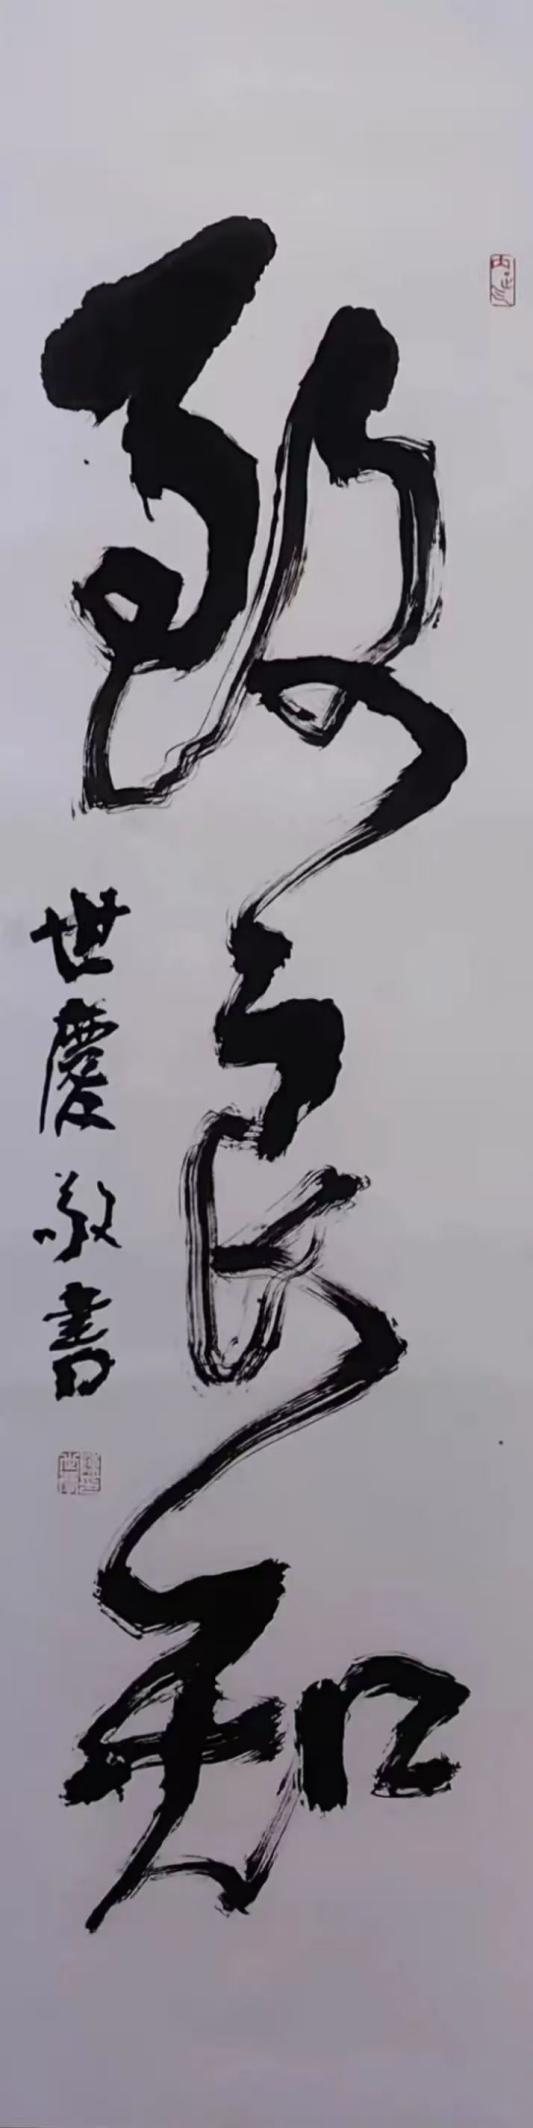 致良知
世慶敬書